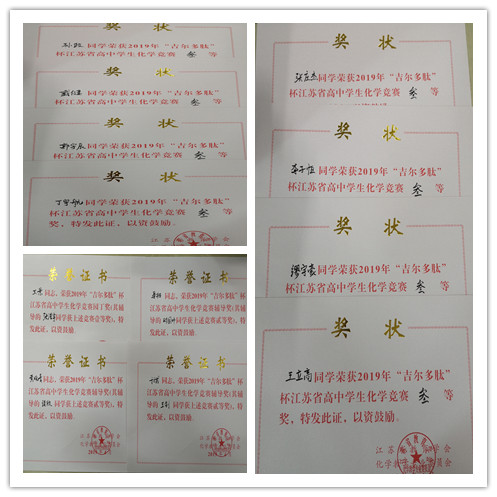 同学荣获2019年“吉尔多肽”
杯江苏省高中学生化学竞赛 叁 等
奖 状
同学荣获2019年“吉尔多肽”
杯江苏省高中学生化学竞赛 叁 等
奖 状
同学荣获2019年“吉尔多肽”
杯江苏省高中学生化学竞赛 叁 等
奖 状
同学荣获2019年“吉尔多肽”
杯江苏省高中学生化学竞赛 叁 等
奖，特发此证，以资鼓励。
荣誉证书
同志，荣获2019年“吉尔多肽”杯
江苏省高中学生化学竞赛园丁奖(其辅
导的 同学获上述竞赛壹等奖)，特
发此证，以资鼓励。
荣誉证书
同志，荣获2019年“吉尔多肽”杯
江苏省高中学生化学竞赛辅导奖(其辅
导的 同学获上述竞赛贰等奖)，特
发此证，以资鼓励。
荣誉证书
同志，荣获2019年“吉尔多肽”杯
江苏省高中学生化学竞赛辅导奖(其辅
导的 同学获上述竞赛贰等奖)，特
发此证，以资鼓励。
荣誉证书
同志，荣获2019年“吉尔多肽”杯
江苏省高中学生化学竞赛辅导奖(其辅
导的 同学获上述竞赛贰等奖)，特
发此证，以资鼓励。
奖 状
同学荣获2019年“吉尔多肽”
杯江苏省高中学生化学竞赛 叁 等
奖 状
同学荣获2019年“吉尔多肽”
杯江苏省高中学生化学竞赛 叁 等
奖 状
同学荣获2019年“吉尔多肽”
杯江苏省高中学生化学竞赛 叁 等
奖 状
同学荣获2019年“吉尔多肽”
杯江苏省高中学生化学竞赛 叁 等
奖，特发此证，以资鼓励。